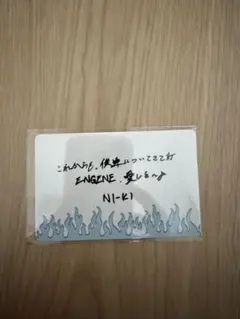 これからも、俺達についてきてね
ENGENE、愛してるよ
NI-KI